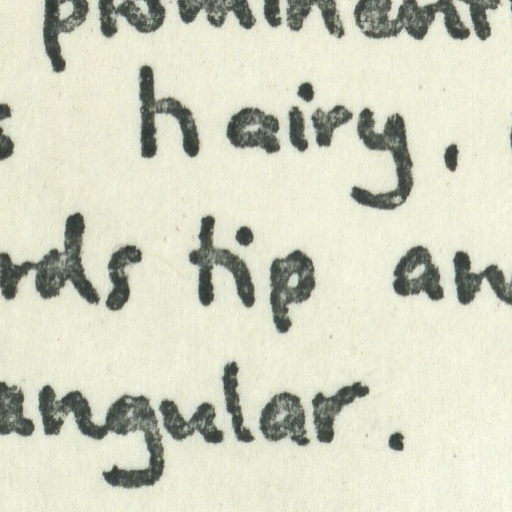 prominent
s hairy.
rds tip an
angular.